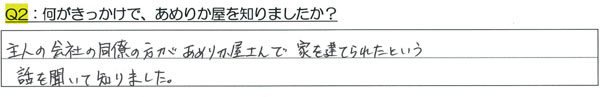 Q2:何がきっかけで、あめりか屋を知りましたか?
主人の会社の同僚の方があめりか屋さんで家を建てられたという
話を聞いて知りました。